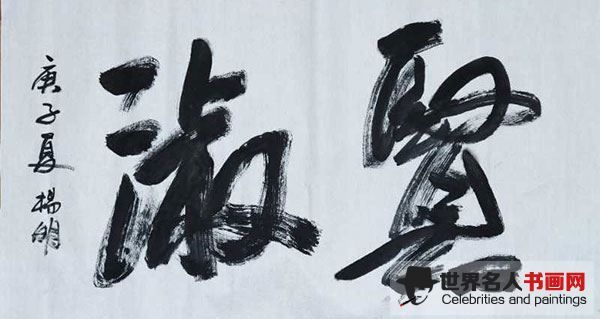 賢淑
庚子夏 楊明
世界名人书画网
Celebrities and paintings